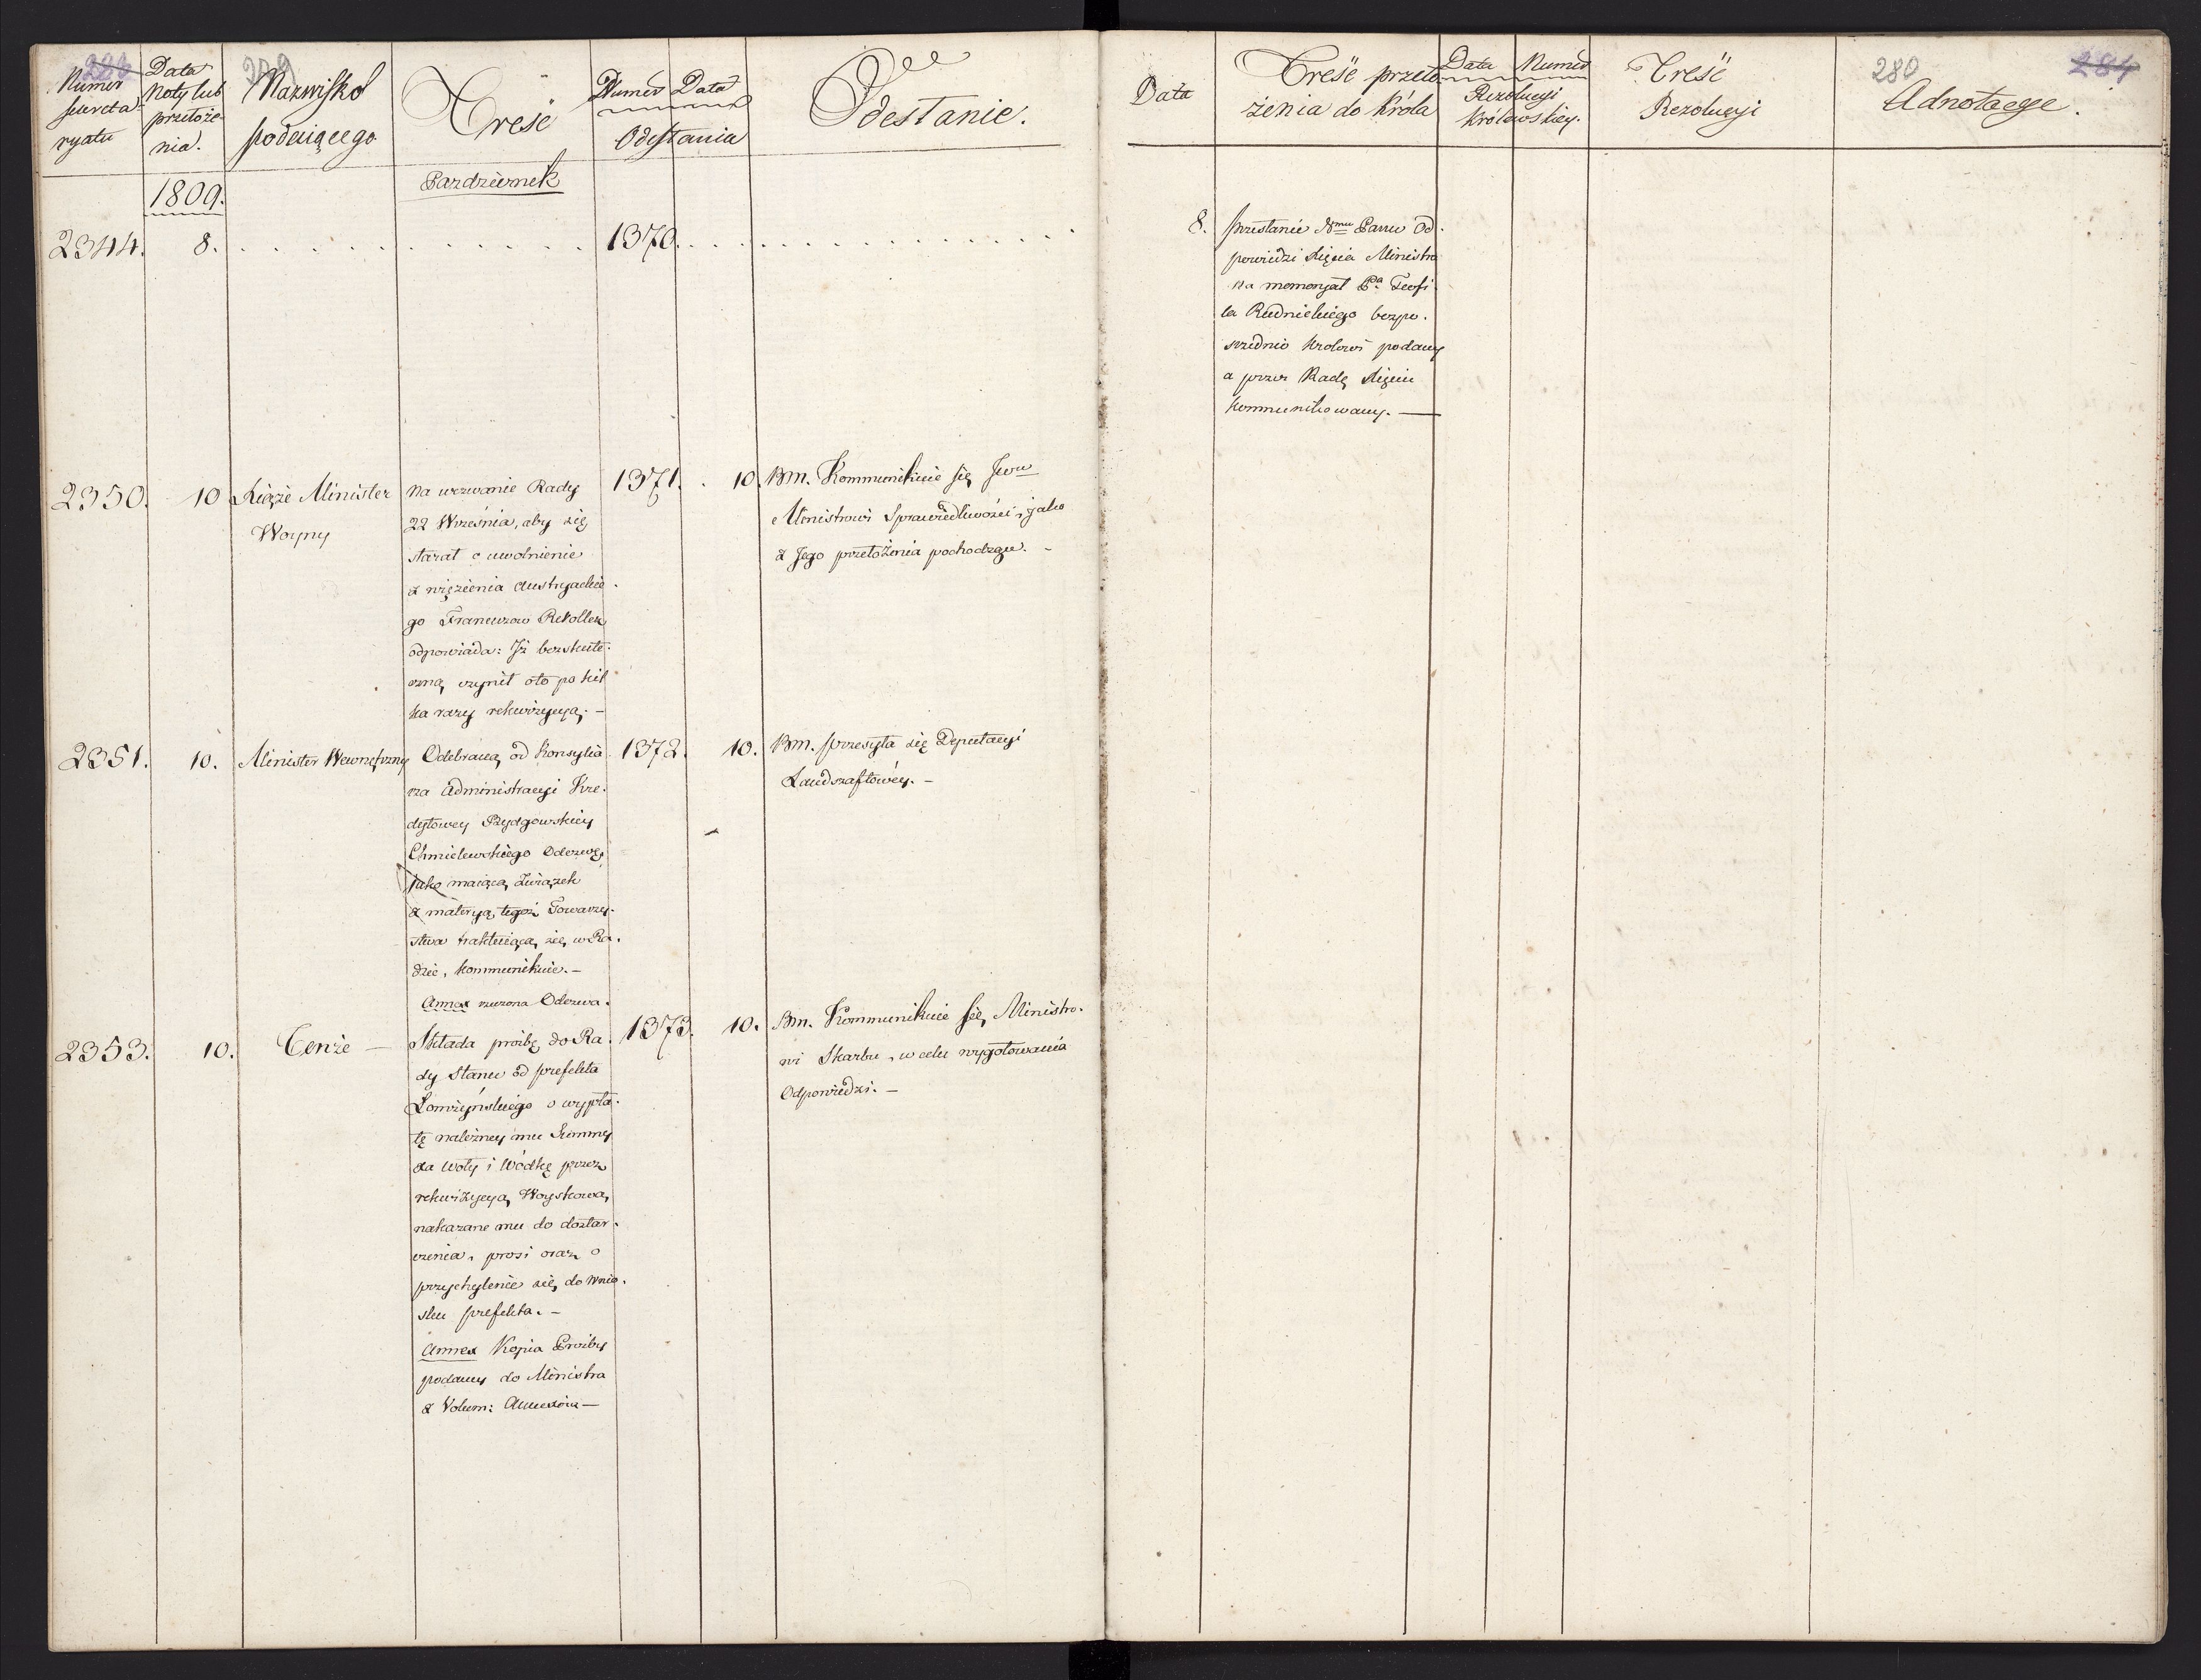 279
Numer
Data
Noty lub
przełoże
nia.
sekreta
ryatu
Nazwisko
podaiącego
Treść
Numer Data
Odesłania
Odesłanie.
1809.
Pazdziernik
2344. 8. 1370.
2350. 10 Xiąże Minister
Woyny
na wezwanie Rady
22 Września, aby się
starał o uwolnienie
z więzienia Austryackie
go Francuzow Rekollek
odpowiada: Iż bezskute
czną czynił oto po kil
ka razy rekwizycyą. –
1371. 10. Bm. Kommunikuie się Jwu
Ministrowi Sprawiedliwości, jako
z Jego przełożenia pochodzące. –
2351. 10. Minister Wewnętrzny
Odebraną od Konsylia
rza Administracyi Kre
dytowey Bydgowskiey
Chmielewskiego Odezwę,
jako maiącą Związek
z materyą tegoż Towarzy
stwa traktuiącą się w Ra
dzie, kommunikuie. –
Annex rzeczona Odezwa.
1372. 10. Bm. przesyła się Deputacyi
Landszaftowéy. –
2353. 10. Tenże —
Składa proźbę do Ra
dy Stanu od prefekta
Łomżyńskiego o wypła
tę należney mu Summy
za woły i Wódkę przez
rekwizycyą Woyskową
nakazane mu do dostar
czenia, prosi oraz o
przychylenie się do Wnio
sku prefekta. –
Annex Kopia Proźby
podaney do Ministra
z Volum: Annexów —
1373. 10. Bm. Kommunikuie się Ministro
wi Skarbu, w celu wygotowania
Odpowiedzi. –
280
284
Data
Treść przeło
żenia do Króla
Data Numer
Rezolucyi
Królewskiey.
Treść
Rezolucyi
Adnotacye.
8. przesłanie Nmu Panu Od
powiedzi Xięcia Ministra
na memoryał Pa Teofi
la Rudnickiego bezpo
srzednio Krolowi podany
a przez Radę Xięciu
kommunikowany. —